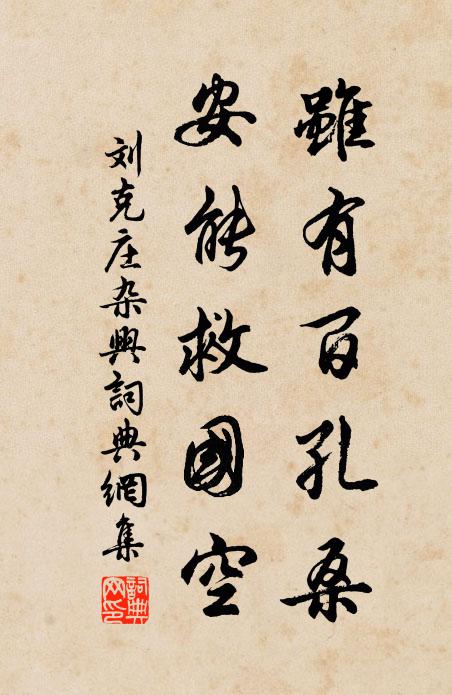 雖有百孔桑
安能救國空
刘克庄杂興詞典網集
詞典網印